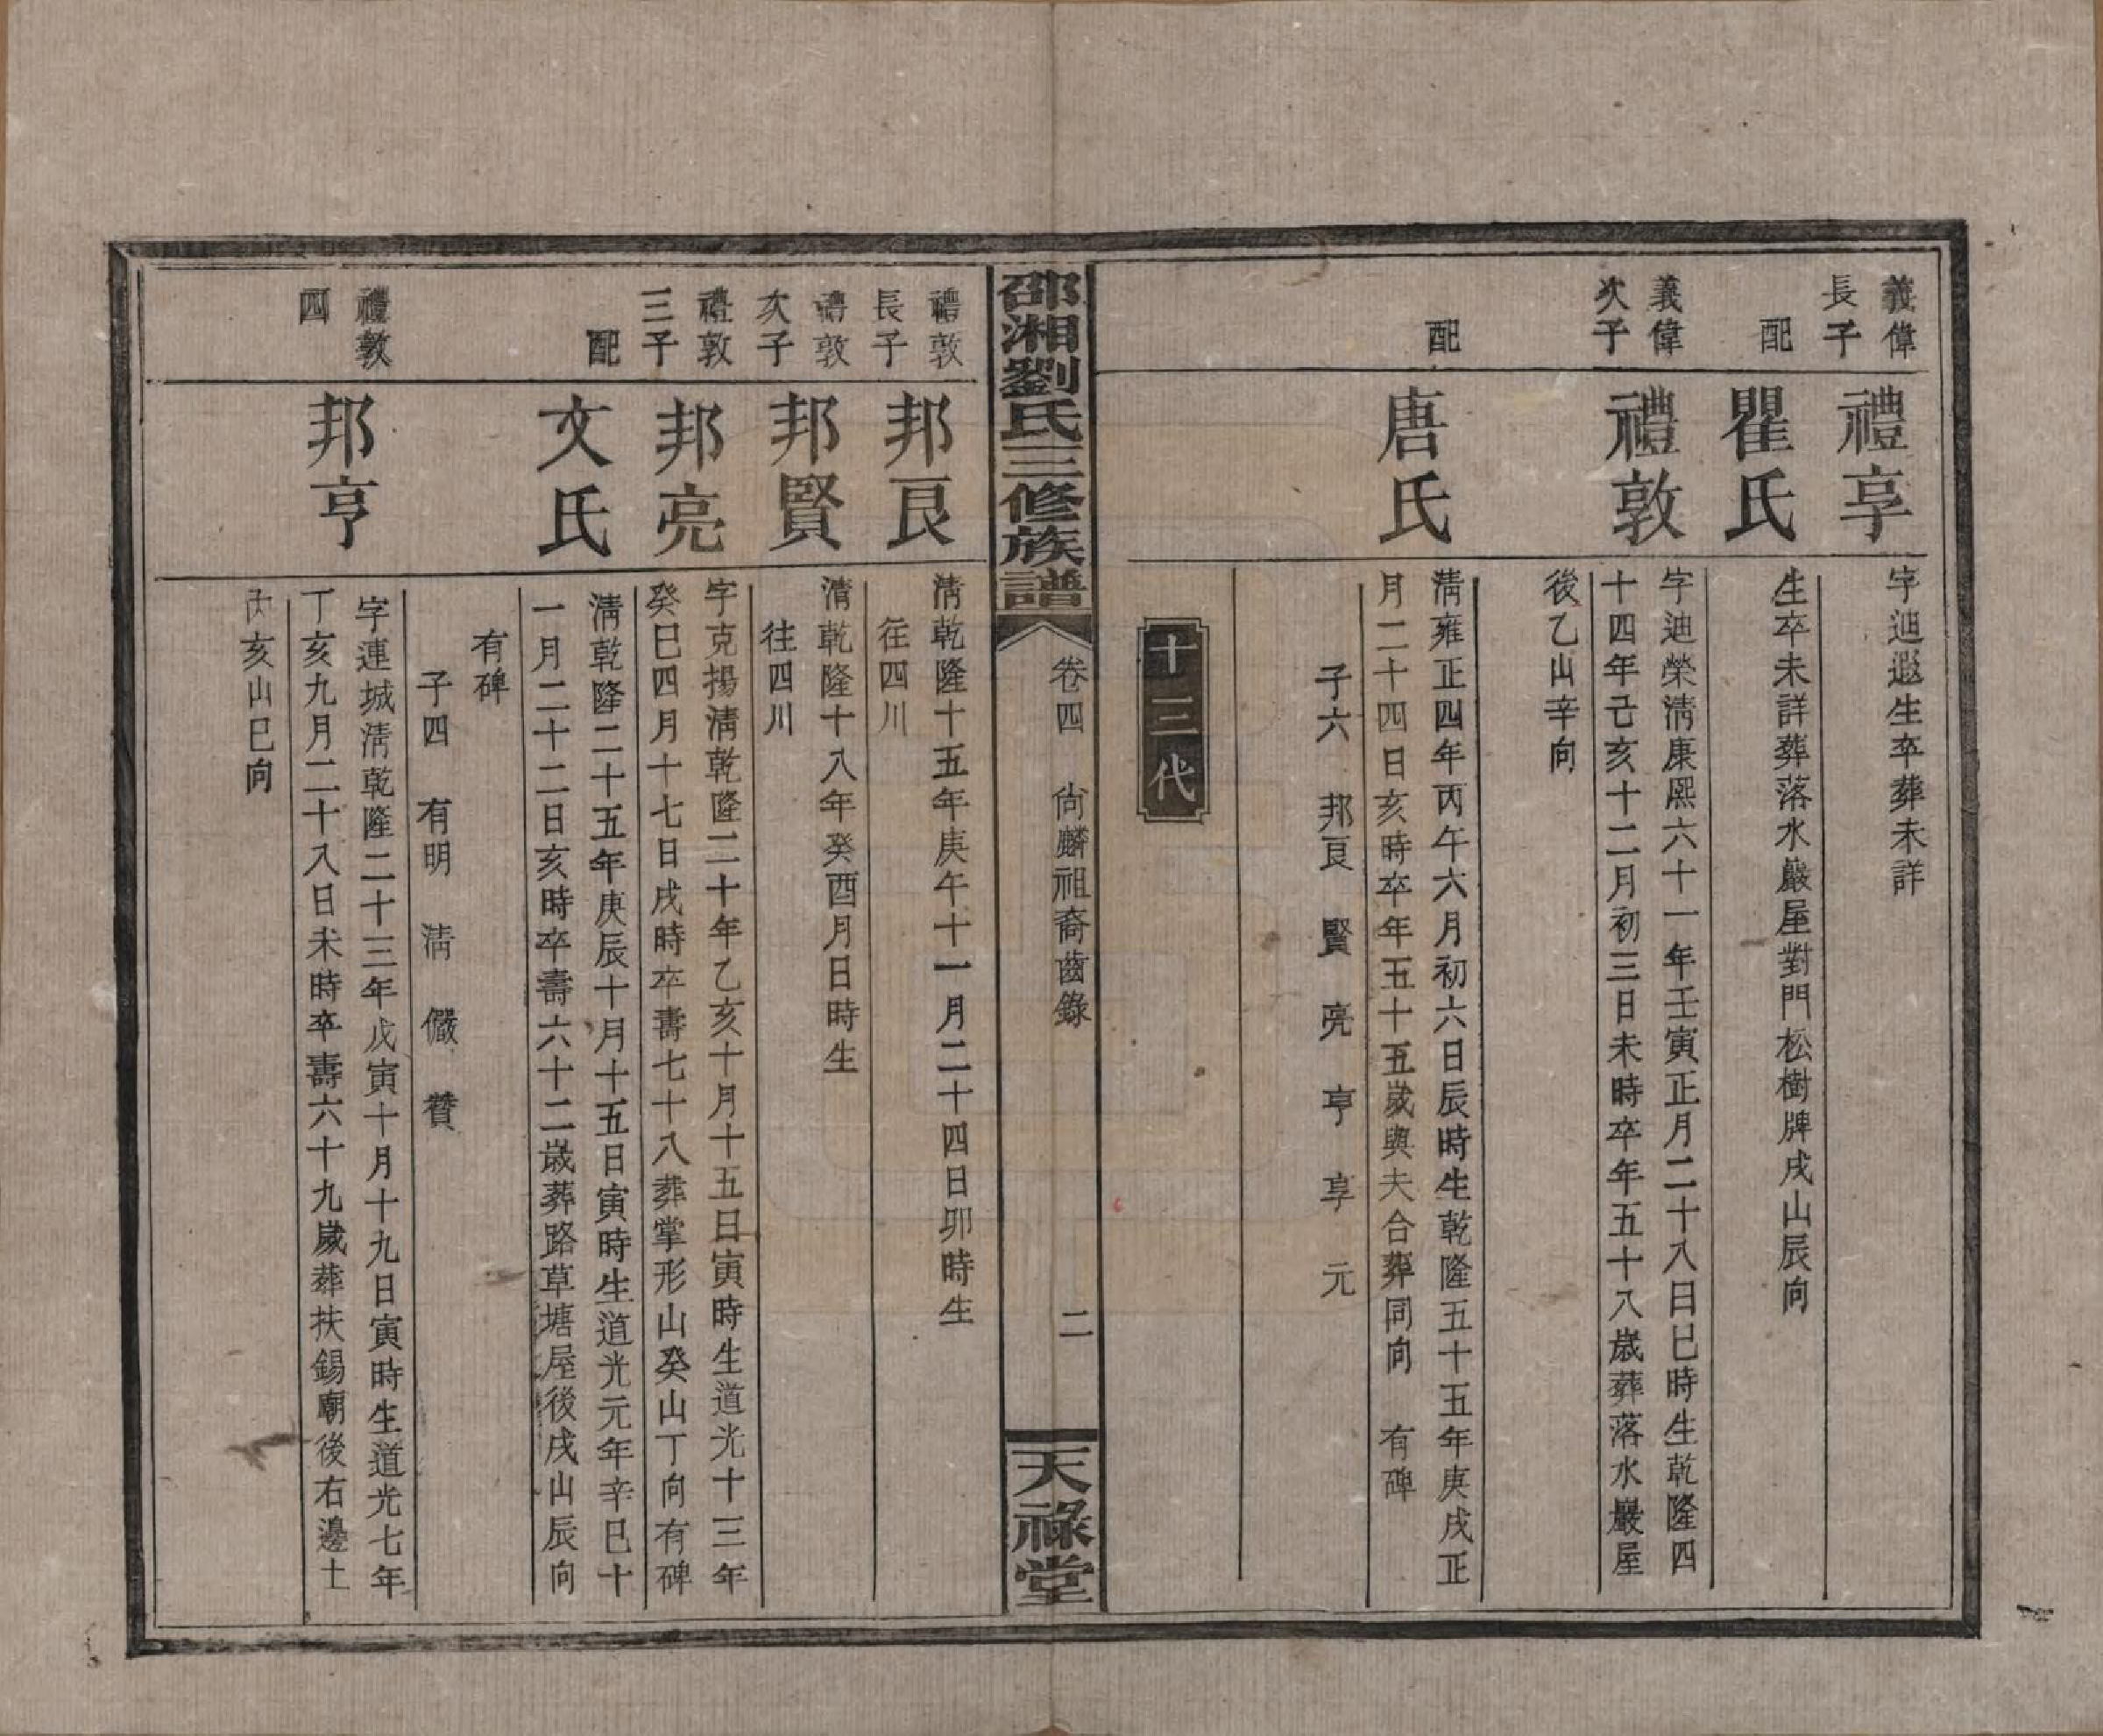 義偉
長子
禮享
字迪遐生卒葬未詳
配
瞿氏
生卒未詳葬落水巖屋對門松樹牌戌山辰向
義偉
次子
禮敦
字迪榮淸康熙六十一年壬寅正月二十八日巳時生乾隆四
十四年己亥十二月初三日未時卒年五十八歲葬落水巖屋
後乙山辛向
配
唐氏
淸雍正四年丙午六月初六日辰時生乾隆五十五年庚戌正
月二十四日亥時卒年五十五歲與夫合葬同向　有碑
子六　邦良　賢　亮　亨　享　元
十三代
邵湘劉氏三修族譜
卷四　尙麟祖裔齒錄
二
天祿堂
禮敦
長子
邦良
淸乾隆十五年庚午十一月二十四日卯時生
往四川
禮敦
次子
邦賢
淸乾隆十八年癸酉月日時生
往四川
禮敦
三子
邦亮
字克揚淸乾隆二十年乙亥十月十五日寅時生道光十三年
癸巳四月十七日戌時卒壽七十八葬掌形山癸山丁向有碑
配
文氏
淸乾隆二十五年庚辰十月十五日寅時生道光元年辛巳十
一月二十二日亥時卒壽六十二歲葬路草塘屋後戌山辰向
有碑
子四　有明　淸　儼　贊
禮敦
四
邦亨
字連城淸乾隆二十三年戊寅十月十九日寅時生道光七年
丁亥九月二十八日未時卒壽六十九歲葬扶錫廟後右邊土
亥山巳向